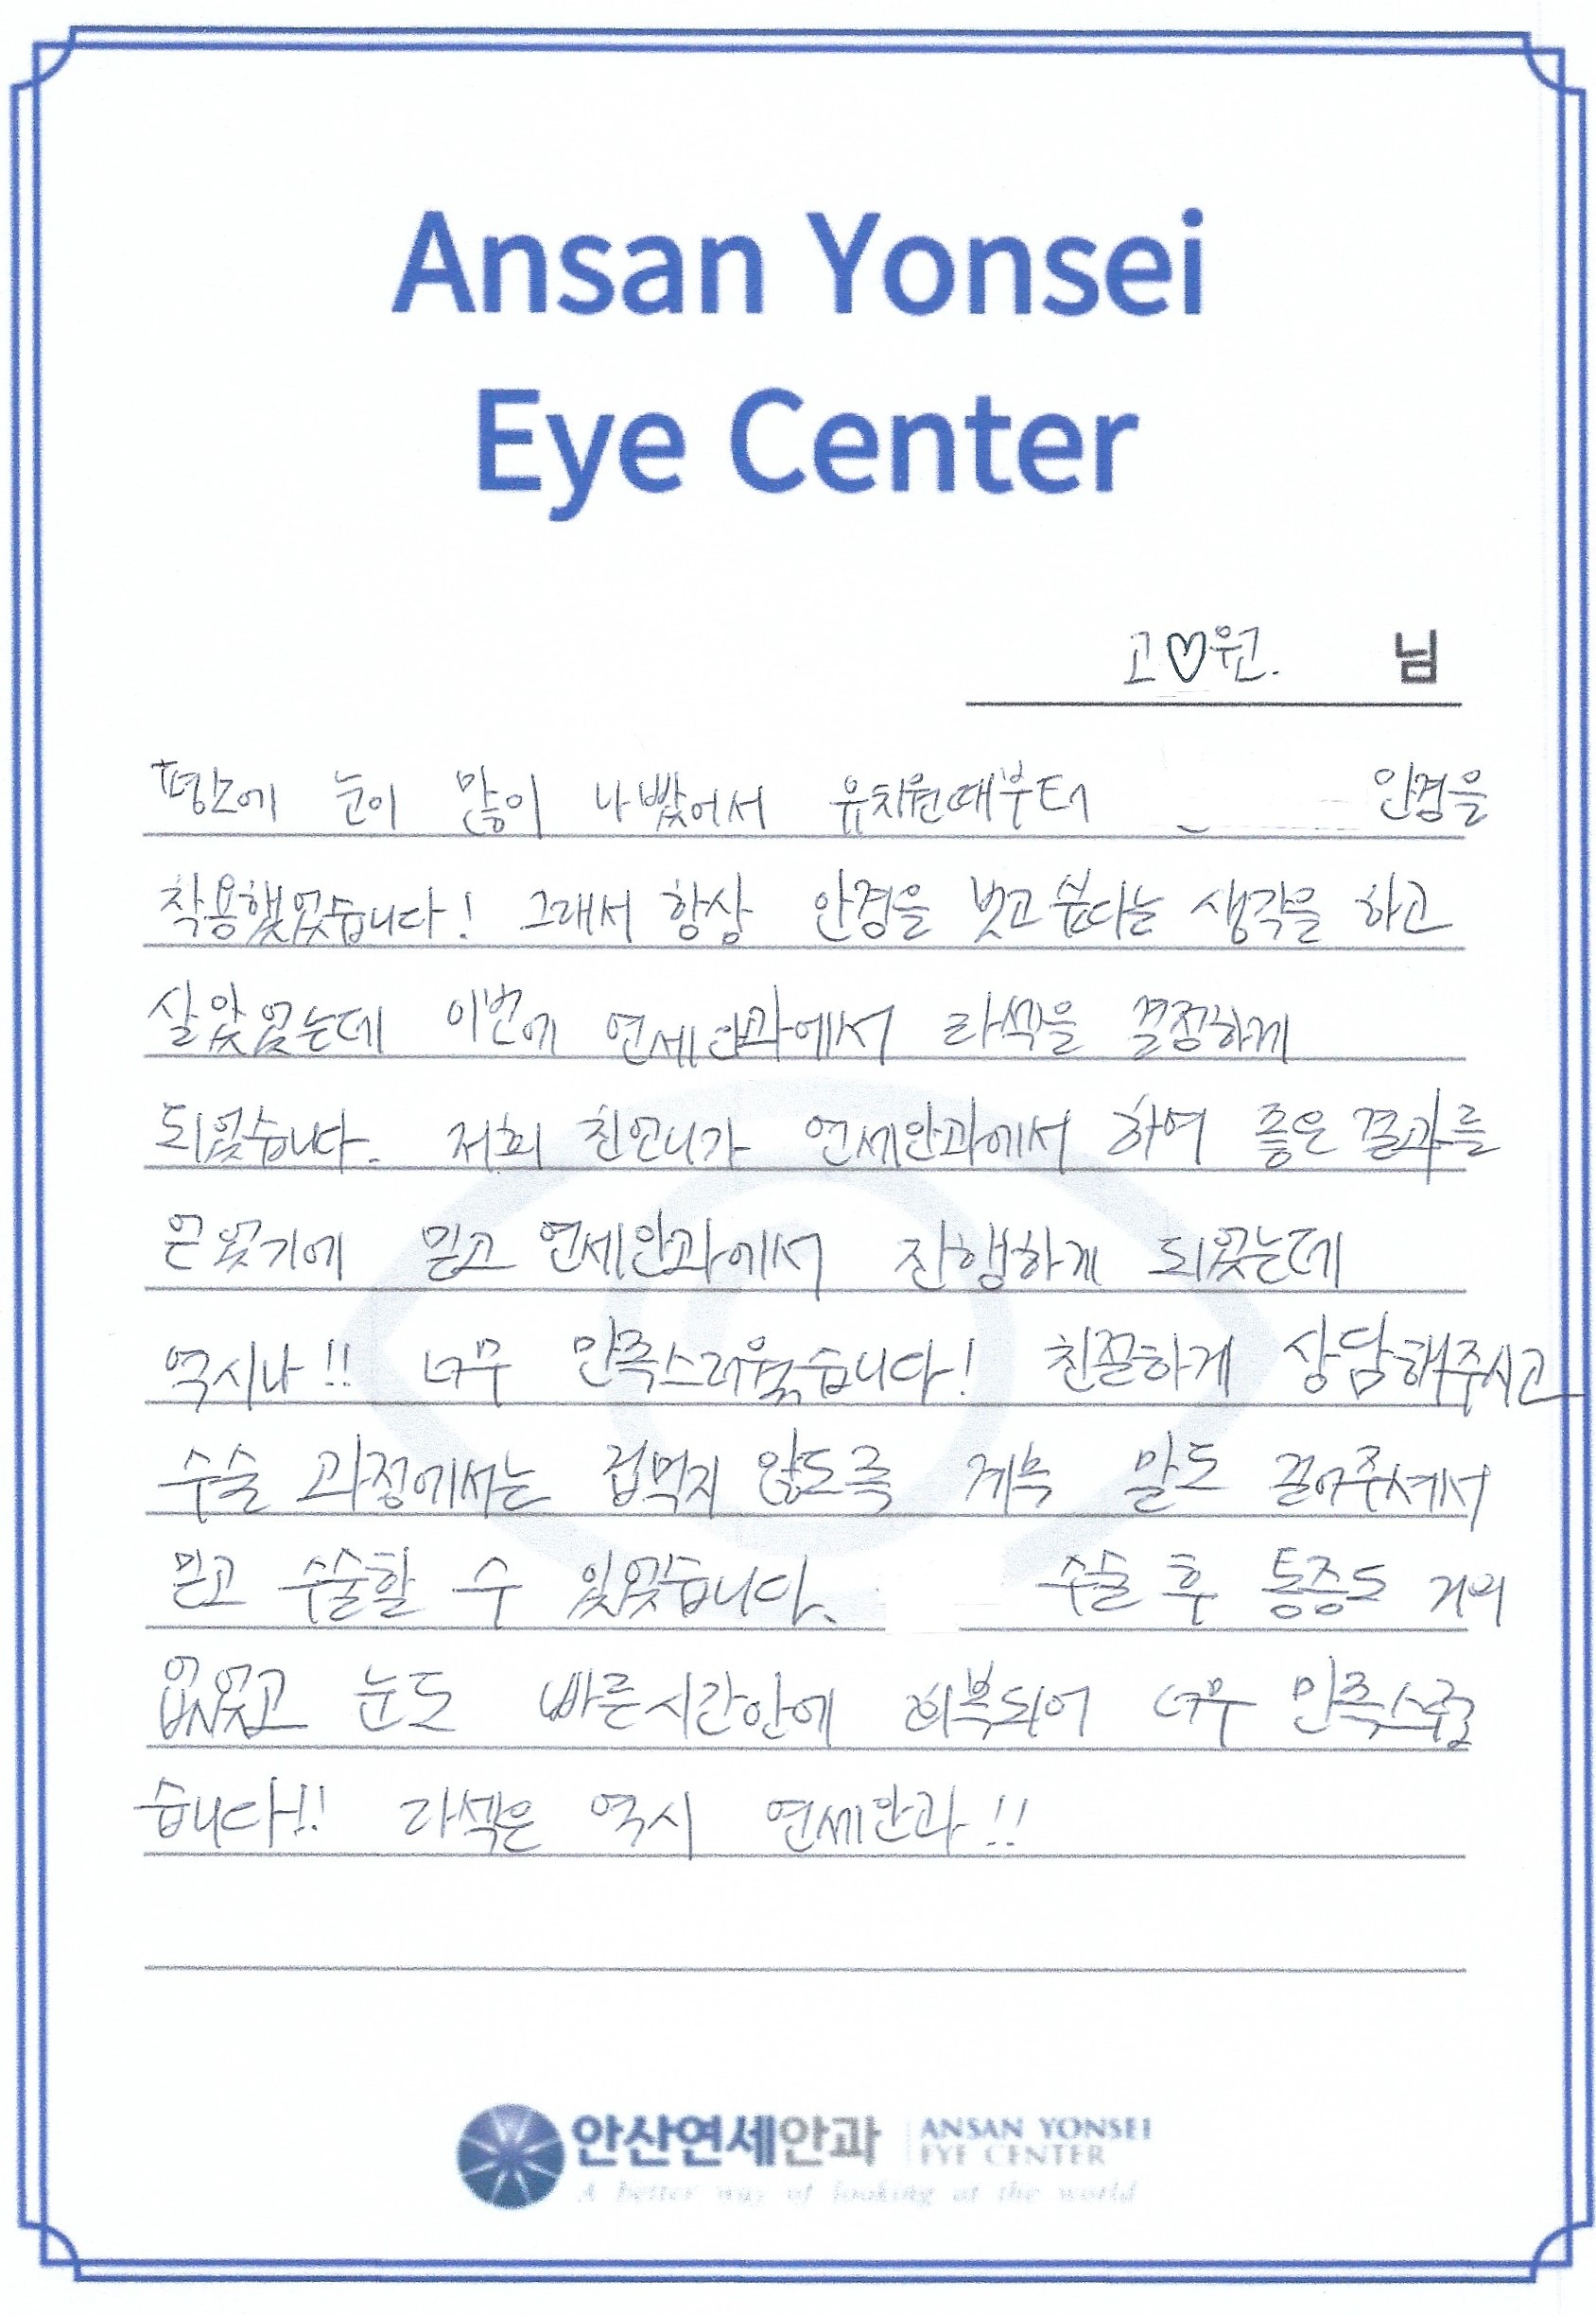 Ansan Yonsei
Eye Center
고♡원. 님
평소에 눈이 많이 나빴어서 유치원때부터 안경을
착용했었습니다! 그래서 항상 안경을 벗고 싶다는 생각을 하고
살았었는데 이번에 연세안과에서 라섹을 결정하게
되었습니다. 저희 친언니가 연세안과에서 하여 좋은 결과를
얻었기에 믿고 연세안과에서 진행하게 되었는데
역시나!! 너무 만족스러웠습니다! 친절하게 상담해주시고
수술 과정에서는 겁먹지 않도록 계속 말도 걸어주셔서
믿고 수술할 수 있었습니다. 수술 후 통증도 거의
없었고 눈도 빠른시간안에 회복되어 너무 만족스럽
습니다!! 라섹은 역시 연세안과!!
안산연세안과 ANSAN YONSEI
EYE CENTER
A better way of looking at the world